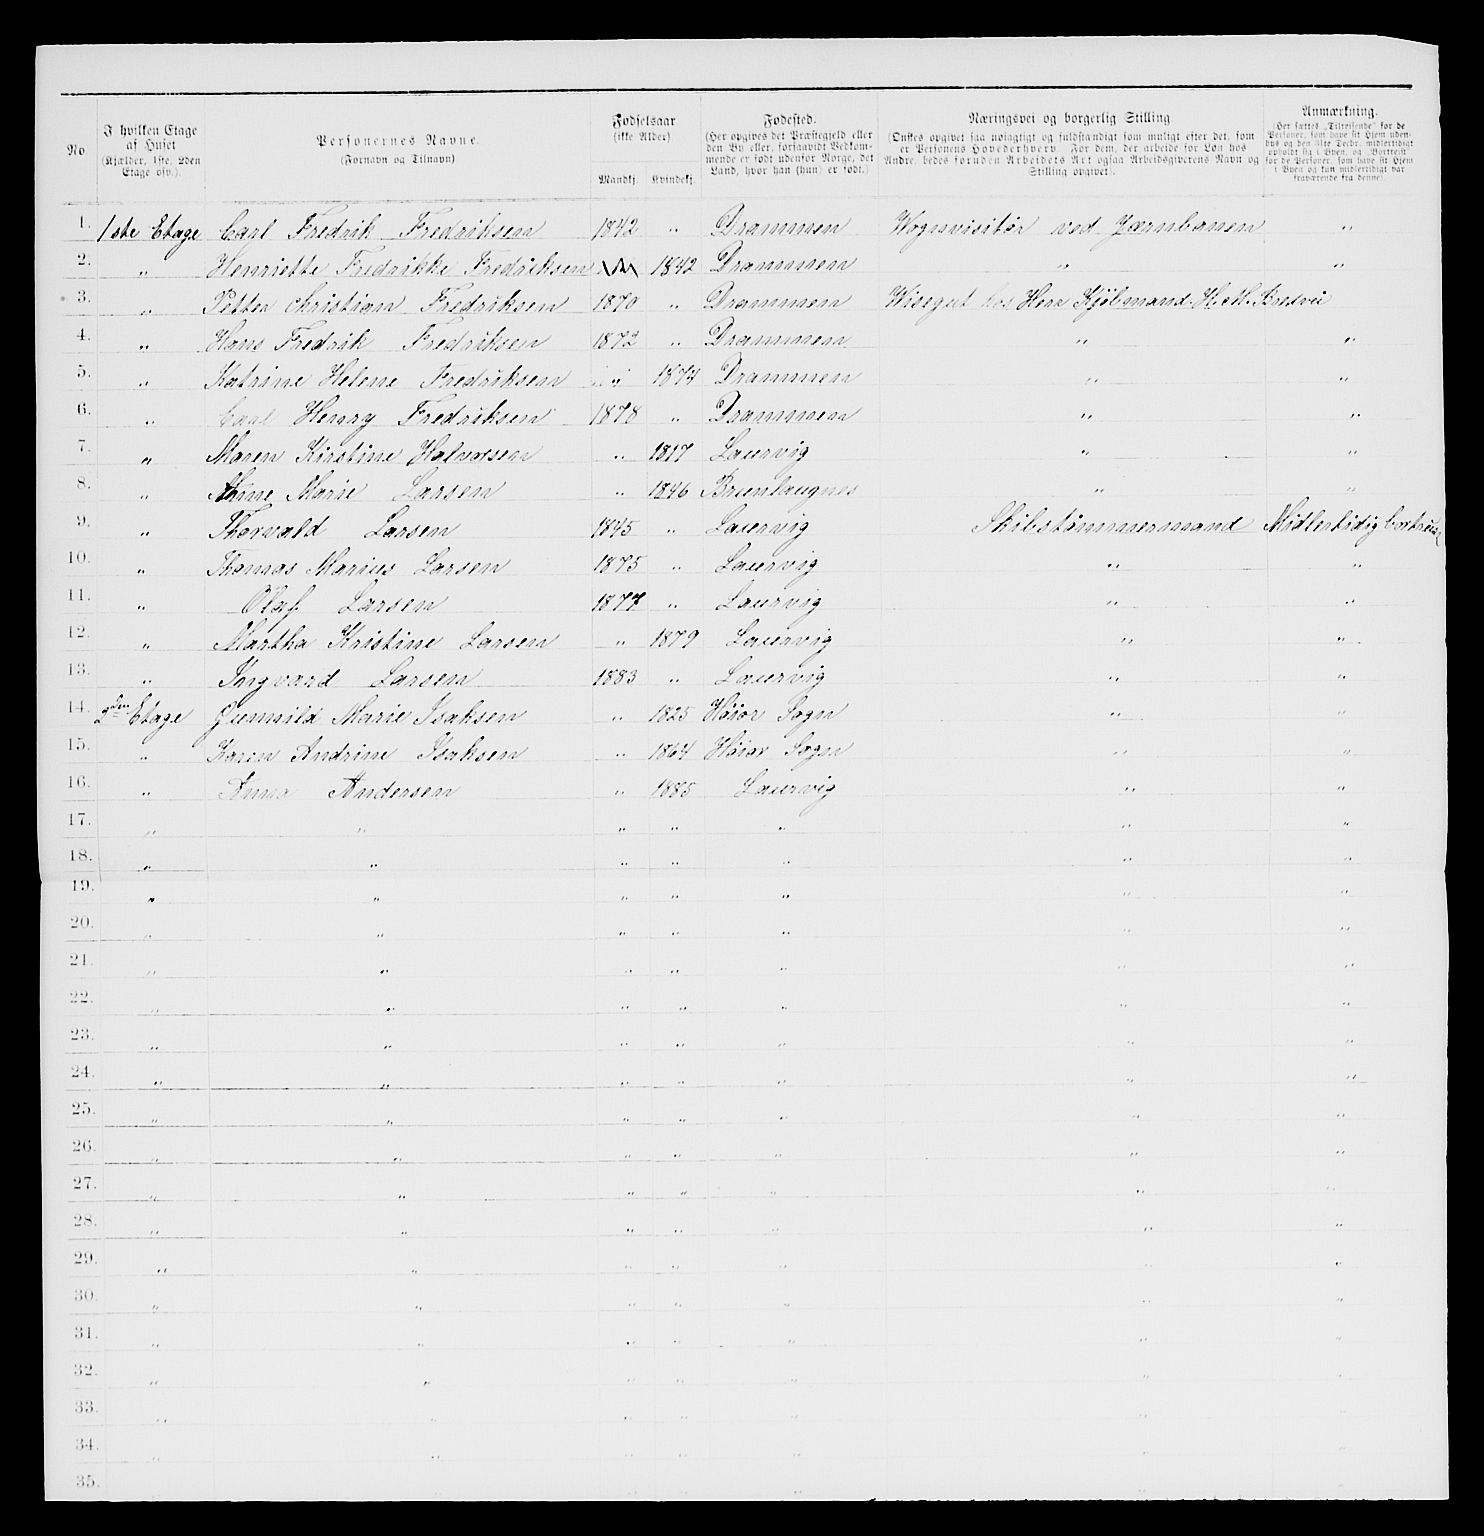 No
I hvilken Etage af Huset (Kjælder, 1ste, 2den Etage osv.).
Personernes Navne. (Fornavn og Tilnavn)
Fødselsaar (ikke Alder). Mandkj. Kvindekj.
Fødested. (Her opgives det Præstegjeld eller den By eller, forsaavidt Vedkommende er født udenfor Norge, det Land, hvor han (hun) er født.)
Næringsvei og borgerlig Stilling. (Ønskes opgivet saa nøiagtigt og fuldstændigt som muligt efter det, som er Personens Hovederhverv. For dem, der arbeide for Løn hos Andre, bedes foruden Arbeidets Art ogsaa Arbeidsgiverens Navn og Stilling opgivet).
Anmærkning. (Her sættes „Tilreisende“ for de Personer, som have sit Hjem udenbys og den 31te Decbr. midlertidigt opholdt sig i Byen, og „Bortreist“ for de Personer, som have sit Hjem i Byen og kun midlertidigt var fraværende fra denne).
1. 1ste Etage Carl Fredrik Fredriksen 1842 „ Drammen Wognvisitør ved Jærnbanen „
2. „ Henriette Fredrikke Fredriksen 1842 Drammen „ „
3. „ Petter Christian Fredriksen 1870 „ Drammen Wisegut hos Herr Kjøbmand H. M. Bredvei
4. „ Hans Fredrik Fredriksen 1872 „ Drammen „ „
5. „ Katrine Helene Fredriksen „ 1874 Drammen „ „
6. „ Carl Henry Fredriksen 1878 „ Drammen „ „
7. „ Maren Kirstine Halvorsen „ 1817 Laurvig „ „
8. „ Anne Marie Larsen „ 1846 Brunlaugnes „ „
9. „ Thorvald Larsen 1845 „ Laurvig Skibstømmermand Midlertidig
10. „ Thomas Marius Larsen 1875 „ Laurvig „ „
11. „ Olaf Larsen 1877 „ Laurvig „ „
12. „ Martha Kristine Larsen „ 1879 Laurvig „ „
13. „ Ingvard Larsen 1883 „ Laurvig „ „
14. 2den Etage Gunnild Marie Isaksen „ 1825 Høior Sogn „ „
15. „ Karen Andrine Isaksen „ 1864 Høior Sogn „ „
16. „ Anna Andersen „ 1885 Laurvig „ „
17. „ „ „ „ „ „ „
18. „ „ „ „ „ „ „
19. „ „ „ „ „ „ „
20. „ „ „ „ „ „ „
21. „ „ „ „ „ „ „
22. „ „ „ „ „ „ „
23. „ „ „ „ „ „ „
24. „ „ „ „ „ „ „
25. „ „ „ „ „ „ „
26. „ „ „ „ „ „ „
27. „ „ „ „ „ „ „
28. „ „ „ „ „ „ „
29. „ „ „ „ „ „ „
30. „ „ „ „ „ „ „
31. „ „ „ „ „ „ „
32. „ „ „ „ „ „ „
33. „ „ „ „ „ „ „
34. „ „ „ „ „ „ „
35. „ „ „ „ „ „